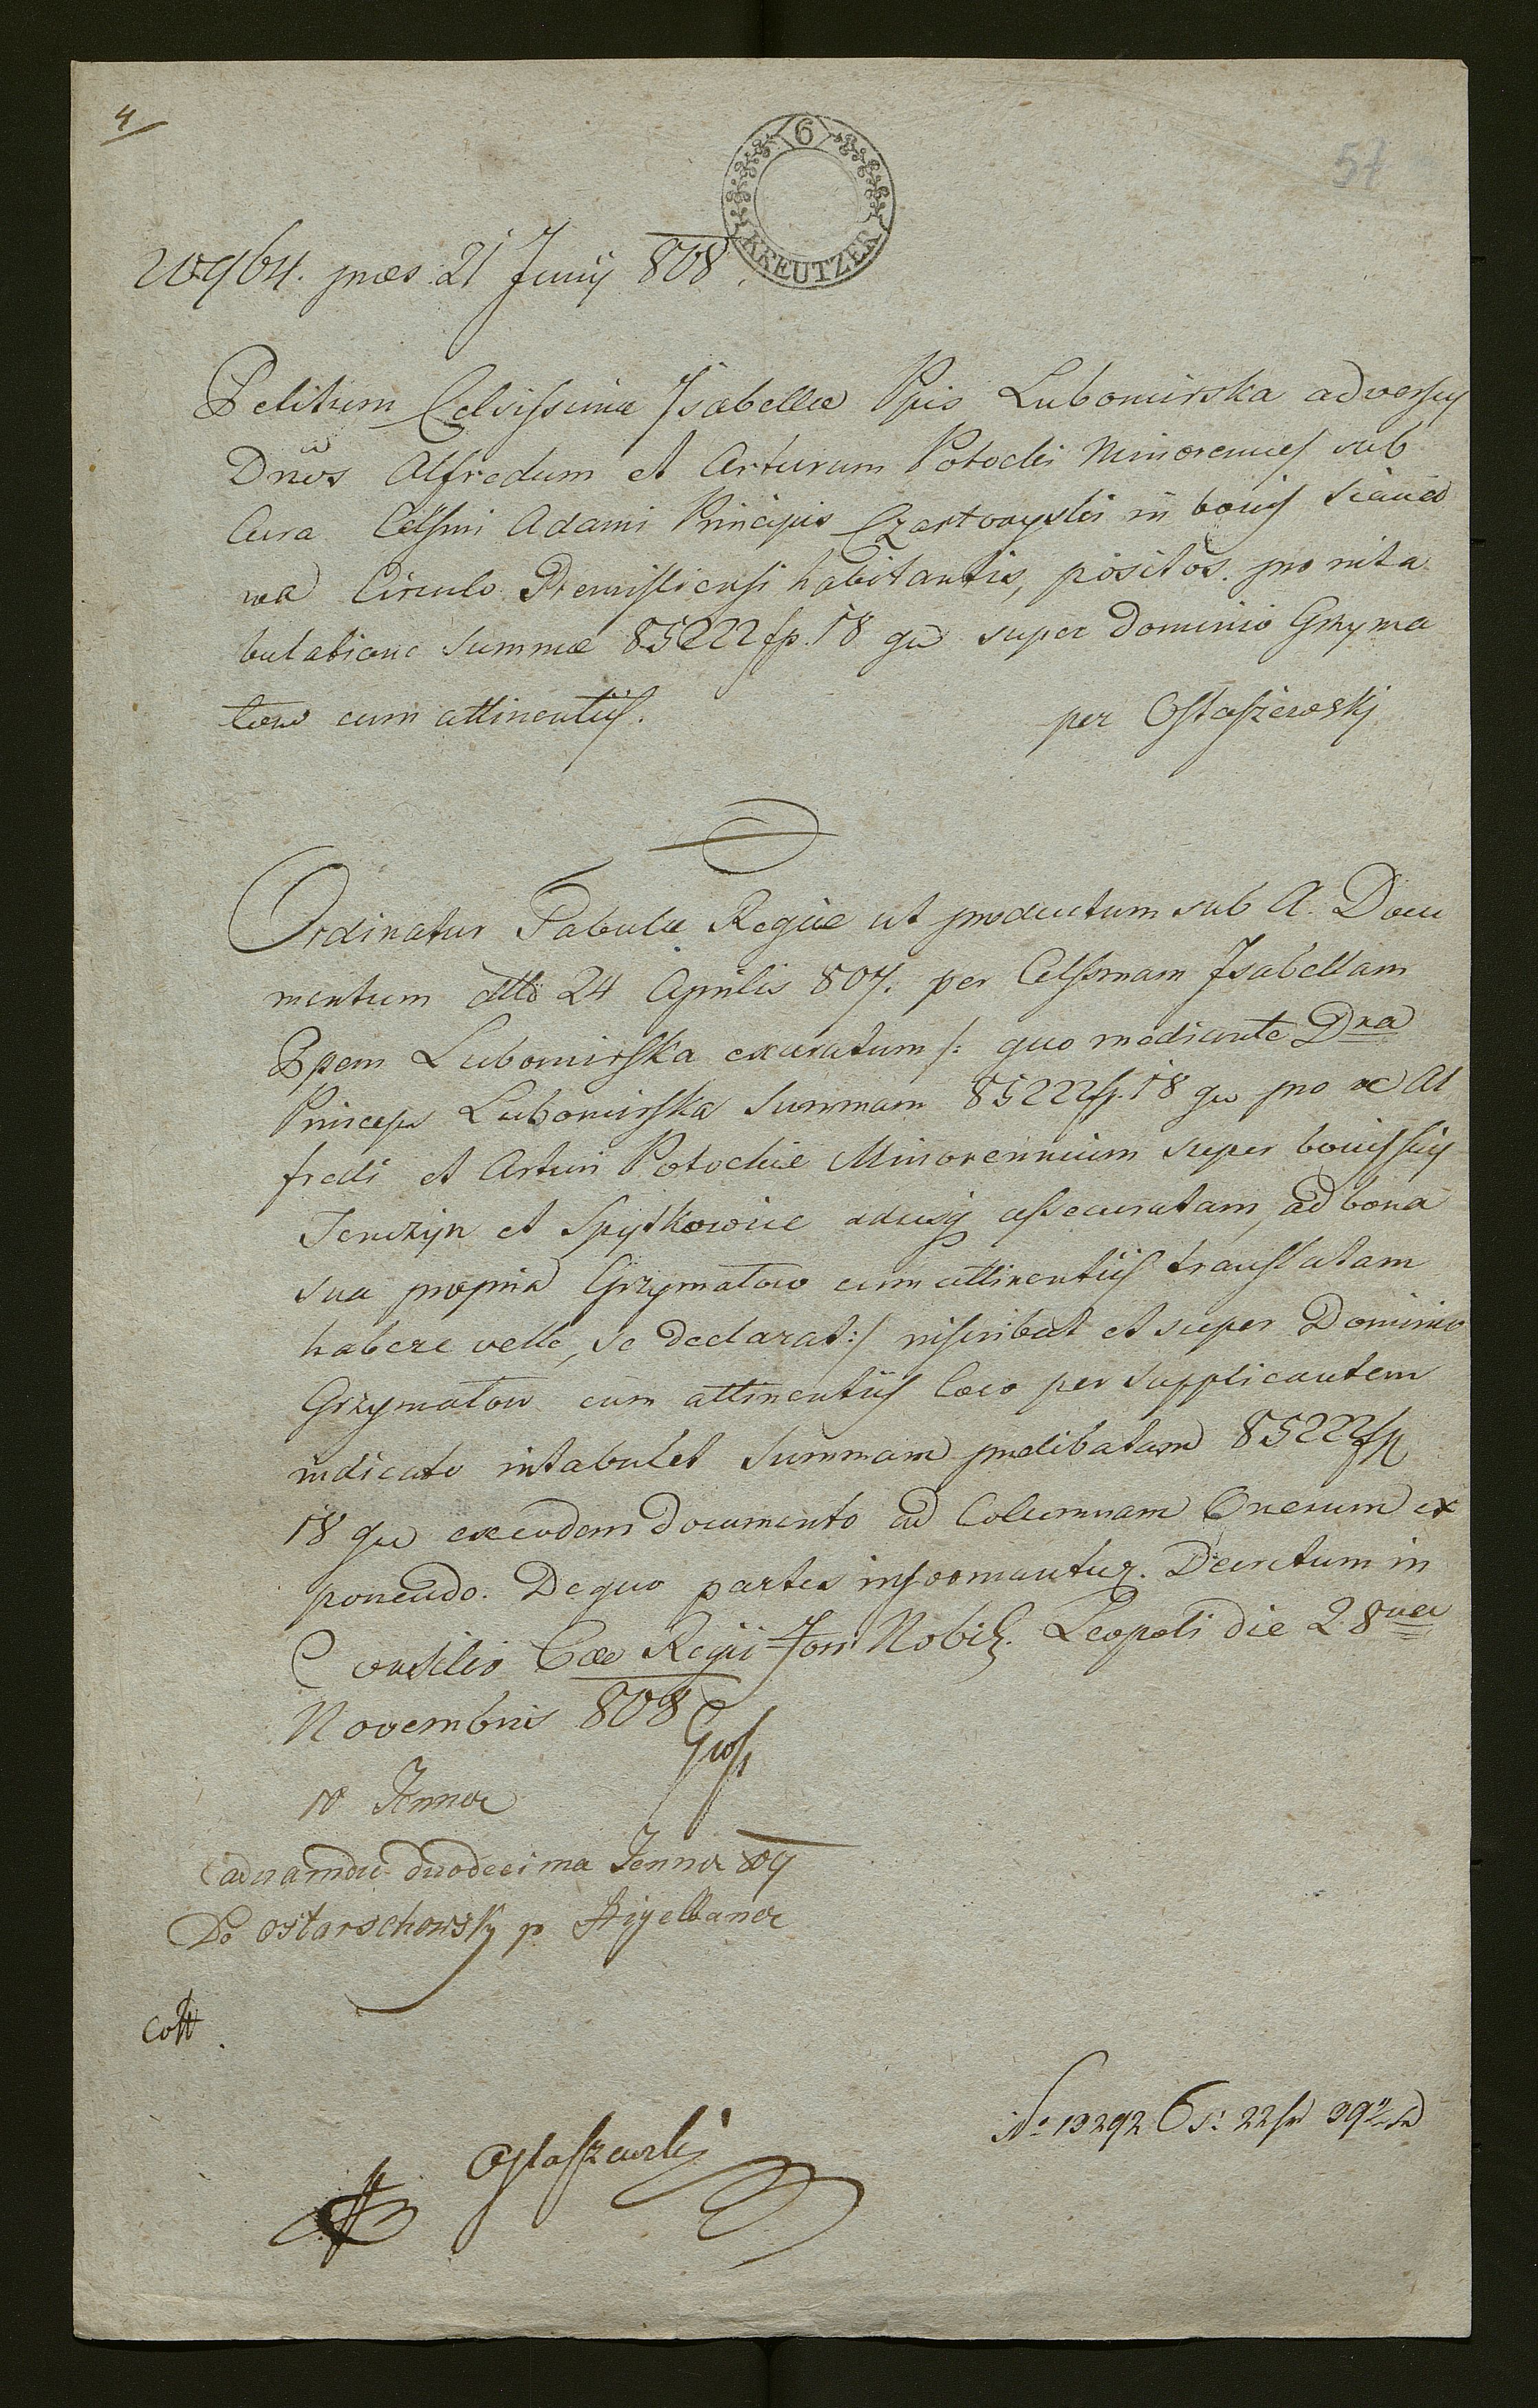 4
57
6
KREUTZER
20964. præs 21 Junÿ 808.
Petitum Celsissimæ Isabellæ Ppis Lubomirska adversus
Dnos Alfredum et Arturum Potockis Minorennes sub
Cura Celsmi Adami Principis Czartoryski in bonis Sienia
wa Circulo Premisliensi habitantis, positos. pro inta
bulatione Summæ 85222 fp. 18 gr super Dominio Grzyma
łow cum attinentiis.
per Ostaszewskj
Ordinatur Tabulæ Regiæ ut productum sub A. Docu
mentum ddto 24 Aprilis 807. per Celssmam Isabellam
Ppem Lubomirska exaratum /: quo mediante Dna
Princeps Lubomirska Summam 85222 fp. 18 gr pro re Al
fredi et Arturi Potockie Minorennium super bonis suis
Tenczyn et Spytkowice adusq assecuratam, ad bona
sua propria Grzymałow cum attinentiis translatam
habere velle, se declarat :/ inscribat et super Dominio
Grzymałow cum attinentiis loco per supplicantem
indicato intabulet Summam prælibatam 85222 fp
18 gr ex eodem documento ad Columnam Onerum ex
ponendo. De quo partes informantur. Decretum in
Consilio Cæs Regii Fori Nobil. Leopoli die 28va
Novembris 808
10 Jenner
duodecima Jenner 809
Do Ostarschowsky p
Coll.
Ostaszewski
No 13292